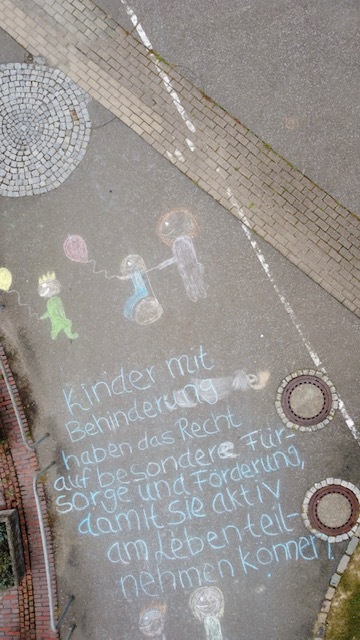 Kinder mit
Behinderung
haben das Recht
auf besondere Für-
sorge und Förderung,
damit sie aktiv
am Leben teil-
nehmen können.